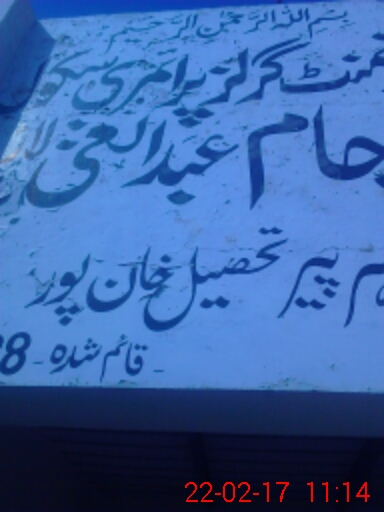 بسم اللہ الرحمٰن الرحیم
گرلز پرائمری سکول
جام عبدالغنی لا
پیر تحصیل خان پور
قائم شدہ - 8
22-02-17 11:14